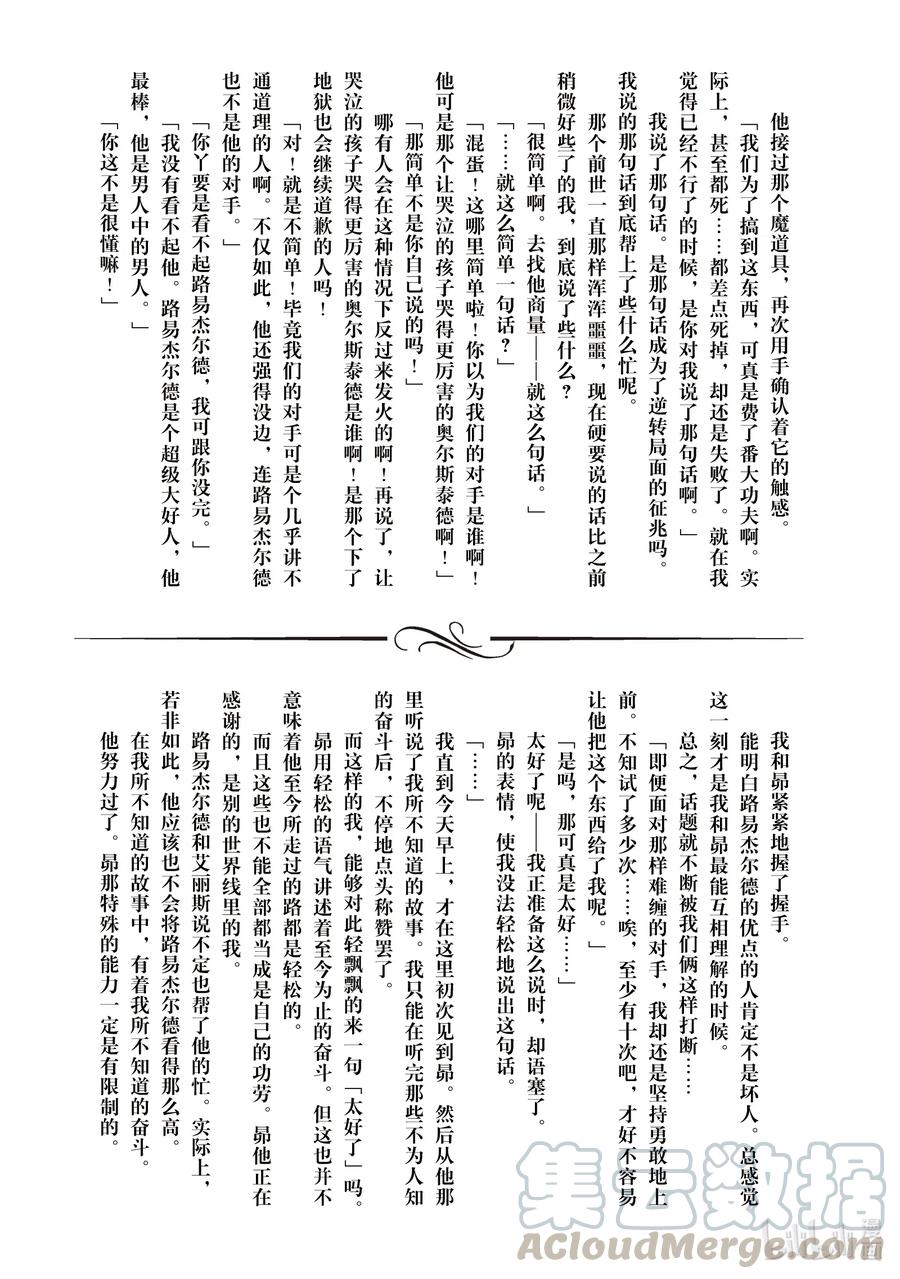 他接过那个魔道具，再次用手确认着它的触感。
「我们为了搞到这东西，可真是费了番大功夫啊。实
际上，甚至都死……都差点死掉，却还是失败了。就在我
觉得已经不行了的时候，是你对我说了那句话啊。」
我说了那句话。是那句话成为了逆转局面的征兆吗。
我说的那句话到底帮上了些什么忙呢。
那个前世一直那样浑浑噩噩，现在硬要说的话比之前
稍微好些了的我，到底说了些什么？
「很简单啊。去找他商量——就这么句话。」
「……就这么简单一句话？」
「混蛋！这哪里简单啦！你以为我们的对手是谁啊！
他可是那个让哭泣的孩子哭得更厉害的奥尔斯泰德啊！」
「那简单不是你自己说的吗！」
哪有人会在这种情况下反过来发火的啊！再说了，让
哭泣的孩子哭得更厉害的奥尔斯泰德是谁啊！是那个下了
地狱也会继续道歉的人吗！
「对！就是不简单！毕竟我们的对手可是个几乎讲不
通道理的人啊。不仅如此，他还强得没边，连路易杰尔德
也不是他的对手。」
「你丫要是看不起路易杰尔德，我可跟你没完。」
「我没有看不起他。路易杰尔德是个超级大好人，他
最棒，他是男人中的男人。」
「你这不是很懂嘛！」
我和昴紧紧地握了握手。
能明白路易杰尔德的优点的人肯定不是坏人。总感觉
这一刻才是我和昴最能互相理解的时候。
总之，话题就不断被我们俩这样打断……
「即便面对那样难缠的对手，我却还是坚持勇敢地上
前。不知试了多少次……唉，至少有十次吧，才好不容易
让他把这个东西给了我呢。」
「是吗，那可真是太好……」
太好了呢——我正准备这么说时，却语塞了。
昴的表情，使我没法轻松地说出这句话。
「……」
我直到今天早上，才在这里初次见到昴。然后从他那
里听说了我所不知道的故事。我只能在听完那些不为人知
的奋斗后，不停地点头称赞罢了。
而这样的我，能够对此轻飘飘的来一句「太好了」吗。
昴用轻松的语气讲述着至今为止的奋斗。但这也并不
意味着他至今所走过的路都是轻松的。
而且这些也不能全部都当成是自己的功劳。昴他正在
感谢的，是别的世界线里的我。
路易杰尔德和艾丽斯说不定也帮了他的忙。实际上，
若非如此，他应该也不会将路易杰尔德看得那么高。
在我所不知道的故事中，有着我所不知道的奋斗。
他努力过了。昴那特殊的能力一定是有限制的。
集云数据
ACloudMerge.com
漫画